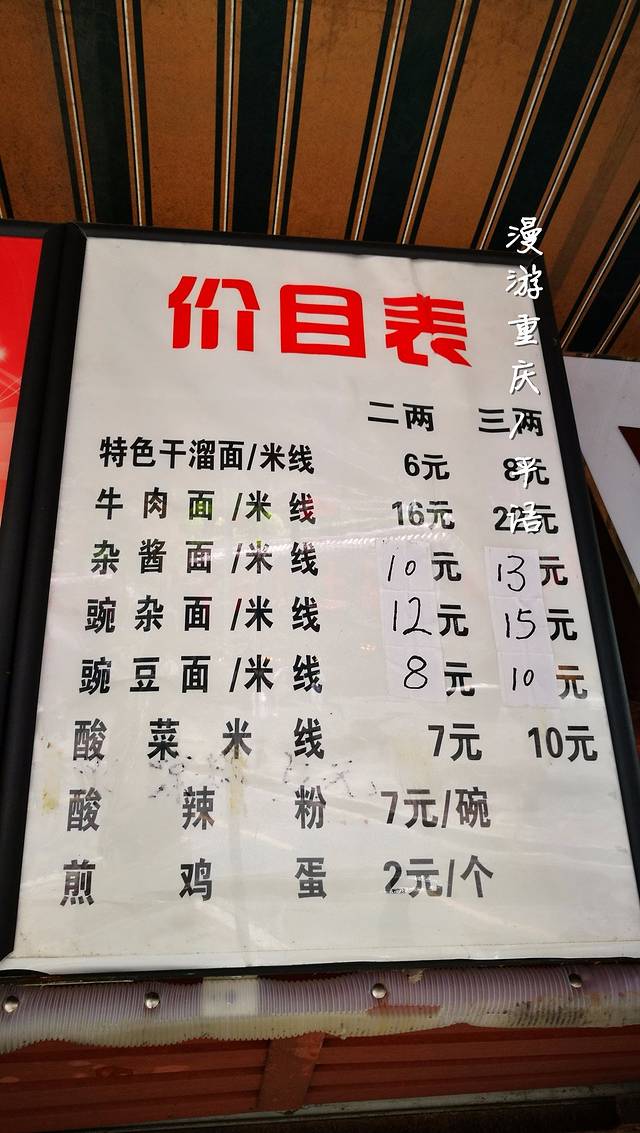 价目表
二两 三两
特色干溜面/米线 6元 8元
牛肉面/米线 16元 22元
杂酱面/米线 10元 13元
豌杂面/米线 12元 15元
豌豆面/米线 8元 10元
酸菜米线 7元 10元
酸辣粉 7元/碗
煎鸡蛋 2元/个
漫游重庆/平语